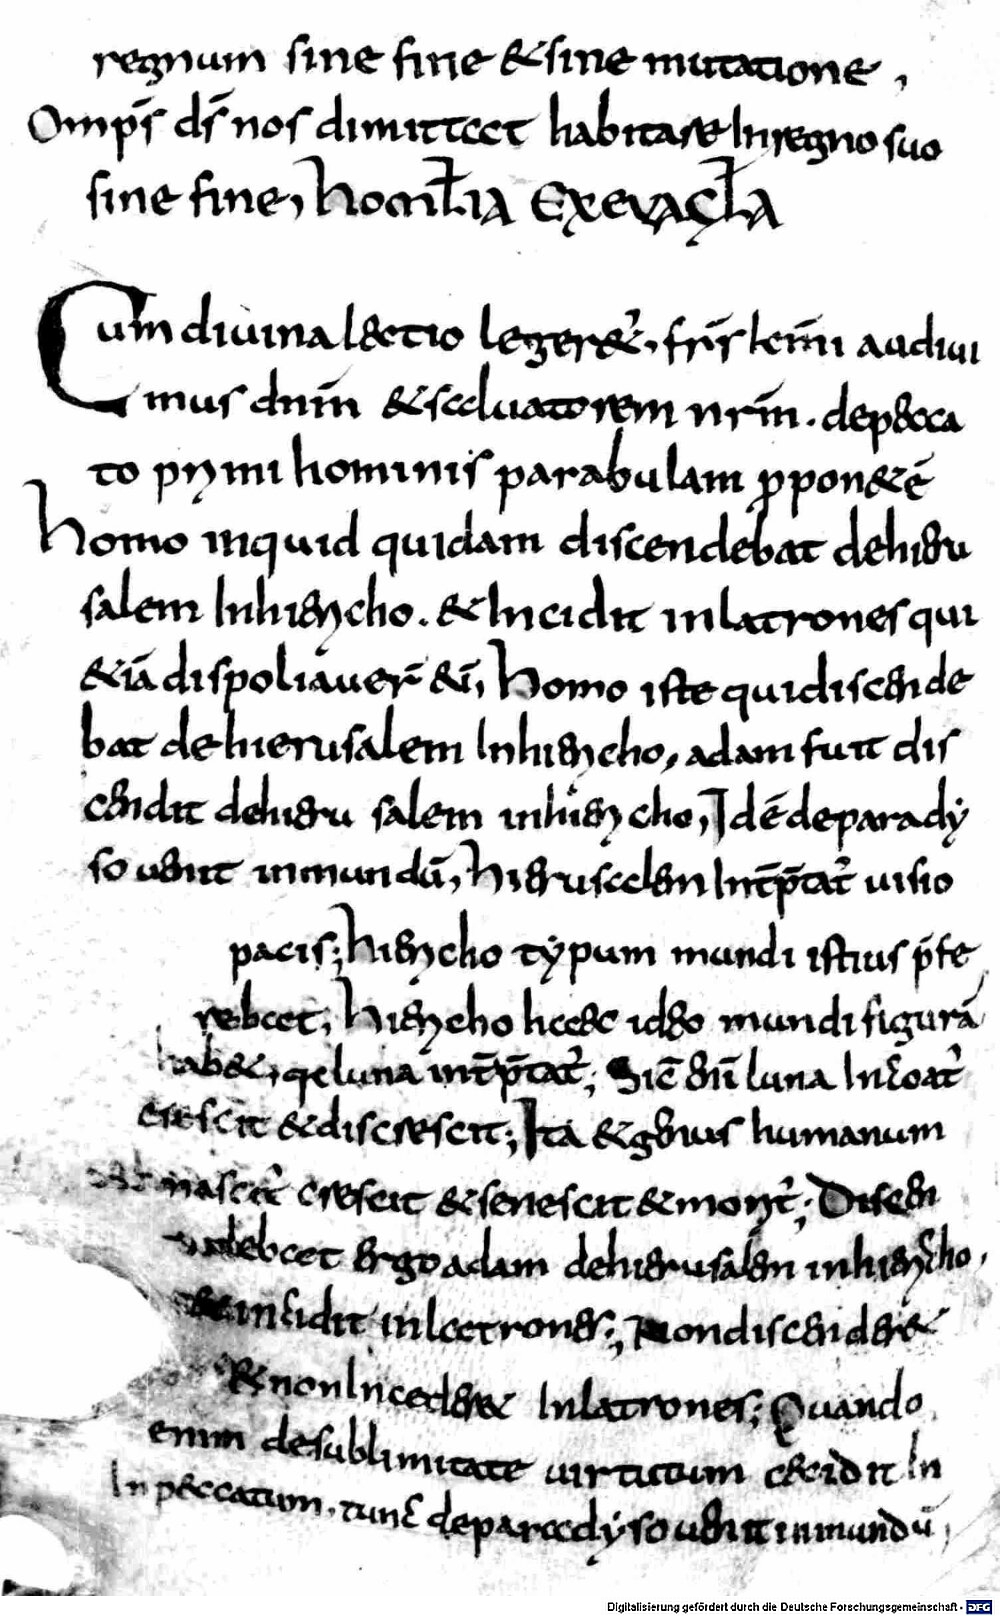 regnum sine fine & sine mutatione,
Omp̄s d̄s nos dimittat habitare In regno suo
sine fine, homil̄ia Ex evagl̄a
Cum divina lectio legeret᷑, fr̄s kmī audivi
mus dnm̄ & salvatorem nr̄m. de pecca
to prymi hominis parabulam ꝓponentē
homo inquid quidam discendebat dehieru
salem Inhierycho. & Incidit in latrones qui
&iā dispoliaver̄ eū, homo iste qui discende
bat de hierusalem Inhierycho, adam fuit dis
cendit dehieru salem inhierycho, Id ē deparady
so venit in mundū, hierusalem Int̄p̄tat᷑ visio
pacis; hierycho typum mundi istius p̄fe
rebat, hierycho haec ideo mundi figurā
habet, q: luna int̄p̄tat᷑; Sic̄ enī luna Incoat᷑
crescit & discrescit; Ita & genus humanum
nascit᷑ crescit & senescit & moryt᷑; Discen
debat ergo adam dehierusalem inhierycho,
& incidit in latrones; Non discenderet
& non Incederet In latrones; Quando
enim desublimitate virtutum cecidit In
In peccatum, tunc deparadyso venit in mundū,
Digitalisierung gefördert durch die Deutsche Forschungsgemeinschaft - DFG